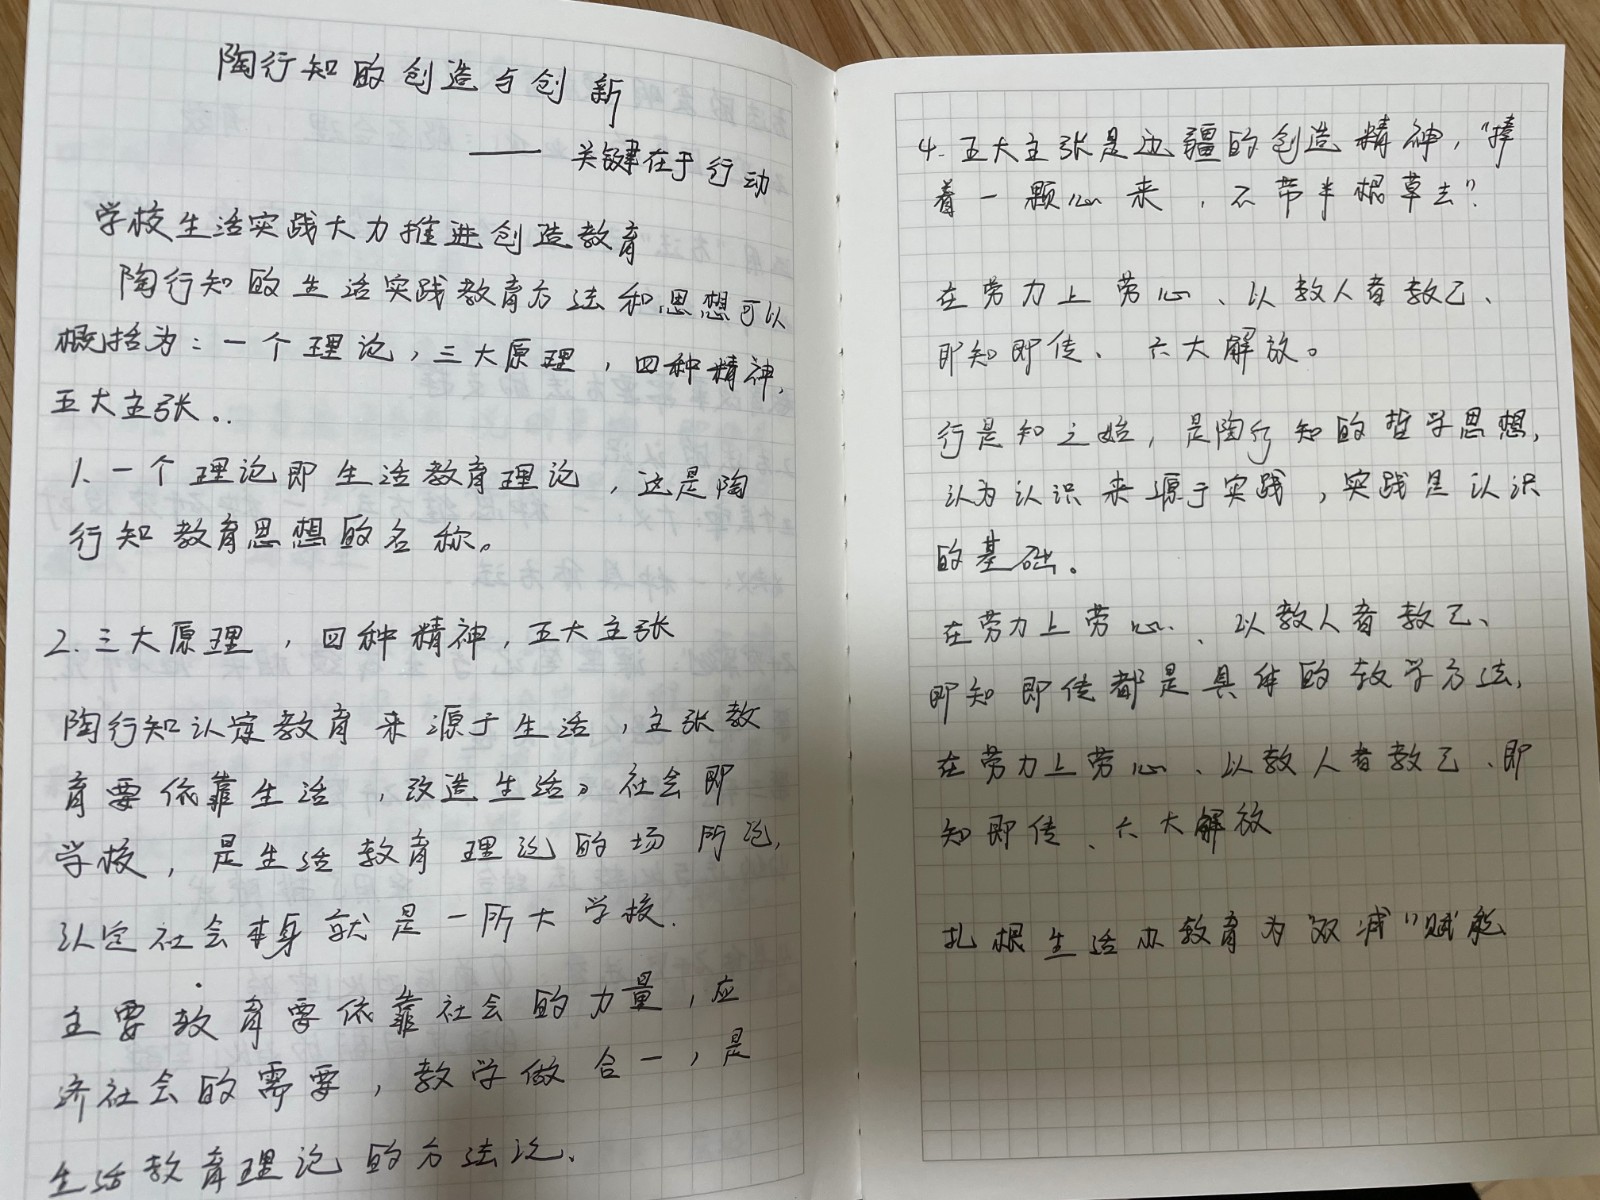 陶行知的创造与创新
—— 关键在于行动
学校生活实践大力推进创造教育
陶行知的生活实践教育方法和思想可以
概括为：一个理论，三大原理，四种精神，
五大主张。.
1、一个理论即生活教育理论，这是陶
行知教育思想的名称。
2.三大原理，四种精神，五大主张
陶行知认定教育来源于生活，主张教
育要依靠生活，改造生活。社会即
学校，是生活教育理论的场所论，
认定社会本身就是一所大学校.
主要教育要依靠社会的力量，应
济社会的需要，教学做合一，是
生活教育理论的方法论、
4.五大主张是边疆的创造精神，“捧
着一颗心来，不带半根草去？
在劳力上劳心、以教人者教己、
即知即传、六大解放。
行是知之始，是陶行知的哲学思想，
认为认识来源于实践，实践是认识
的基础。
在劳力上劳心、以教人者教己、
即知即传都是具体的教学方法，
在劳力上劳心、以教人者教己、即
知即传、六大解放
扎根生活办教育为“双减”赋能